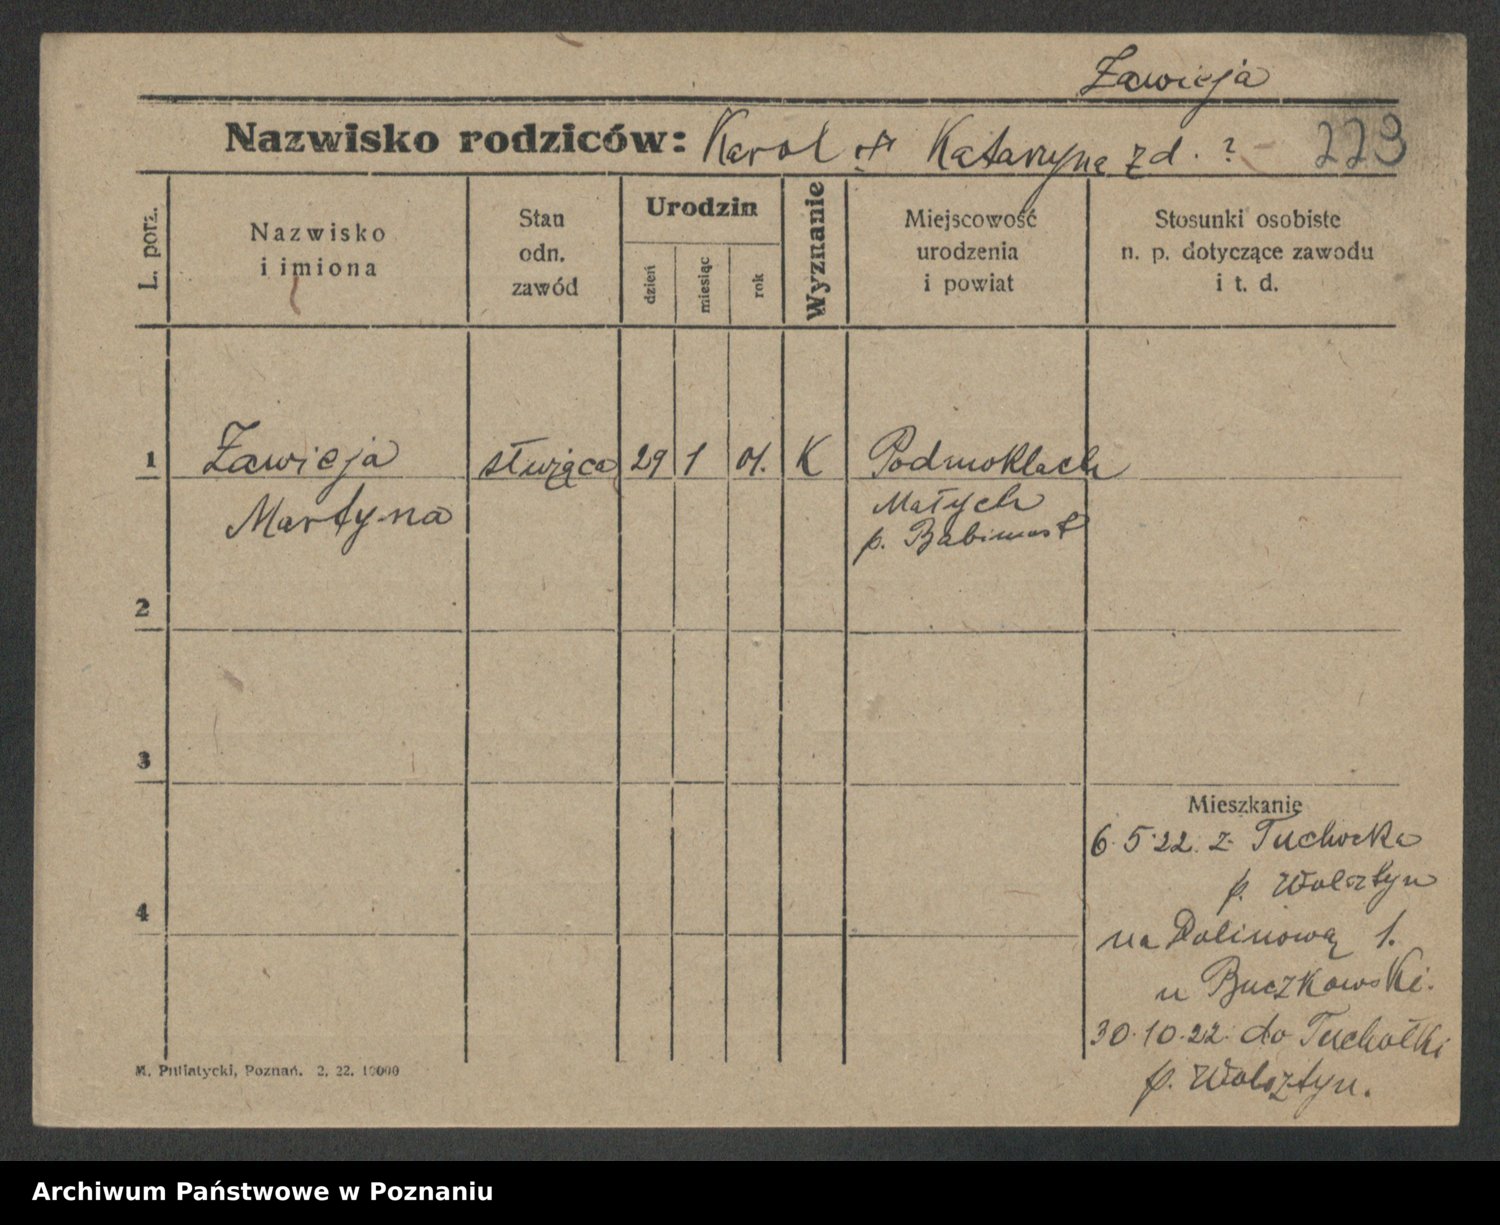 Zawieja
Nazwisko rodziców: Karol Katarzyna z d. ? 223
L. porz.
Nazwisko i imiona
Stan odn. zawód
Urodzin
dzień
miesiąc
rok
Wyznanie
Miejscowość urodzenia i powiat
Stosunki osobiste n. p. dotyczące zawodu i t. d.
1 Zawieja służąca 29 1 01. K Podmoklach
Martyna Małych
p. Babimost
2
3
Mieszkanie
6.5.22. z
p. Wolsztyn
4
na Dolinową 1.
u Buczkowski.
30.10.22. do Tuchołki
p. Wolsztyn.
M. Putiatycki, Poznań. 2. 22. 10000
Archiwum Państwowe w Poznaniu